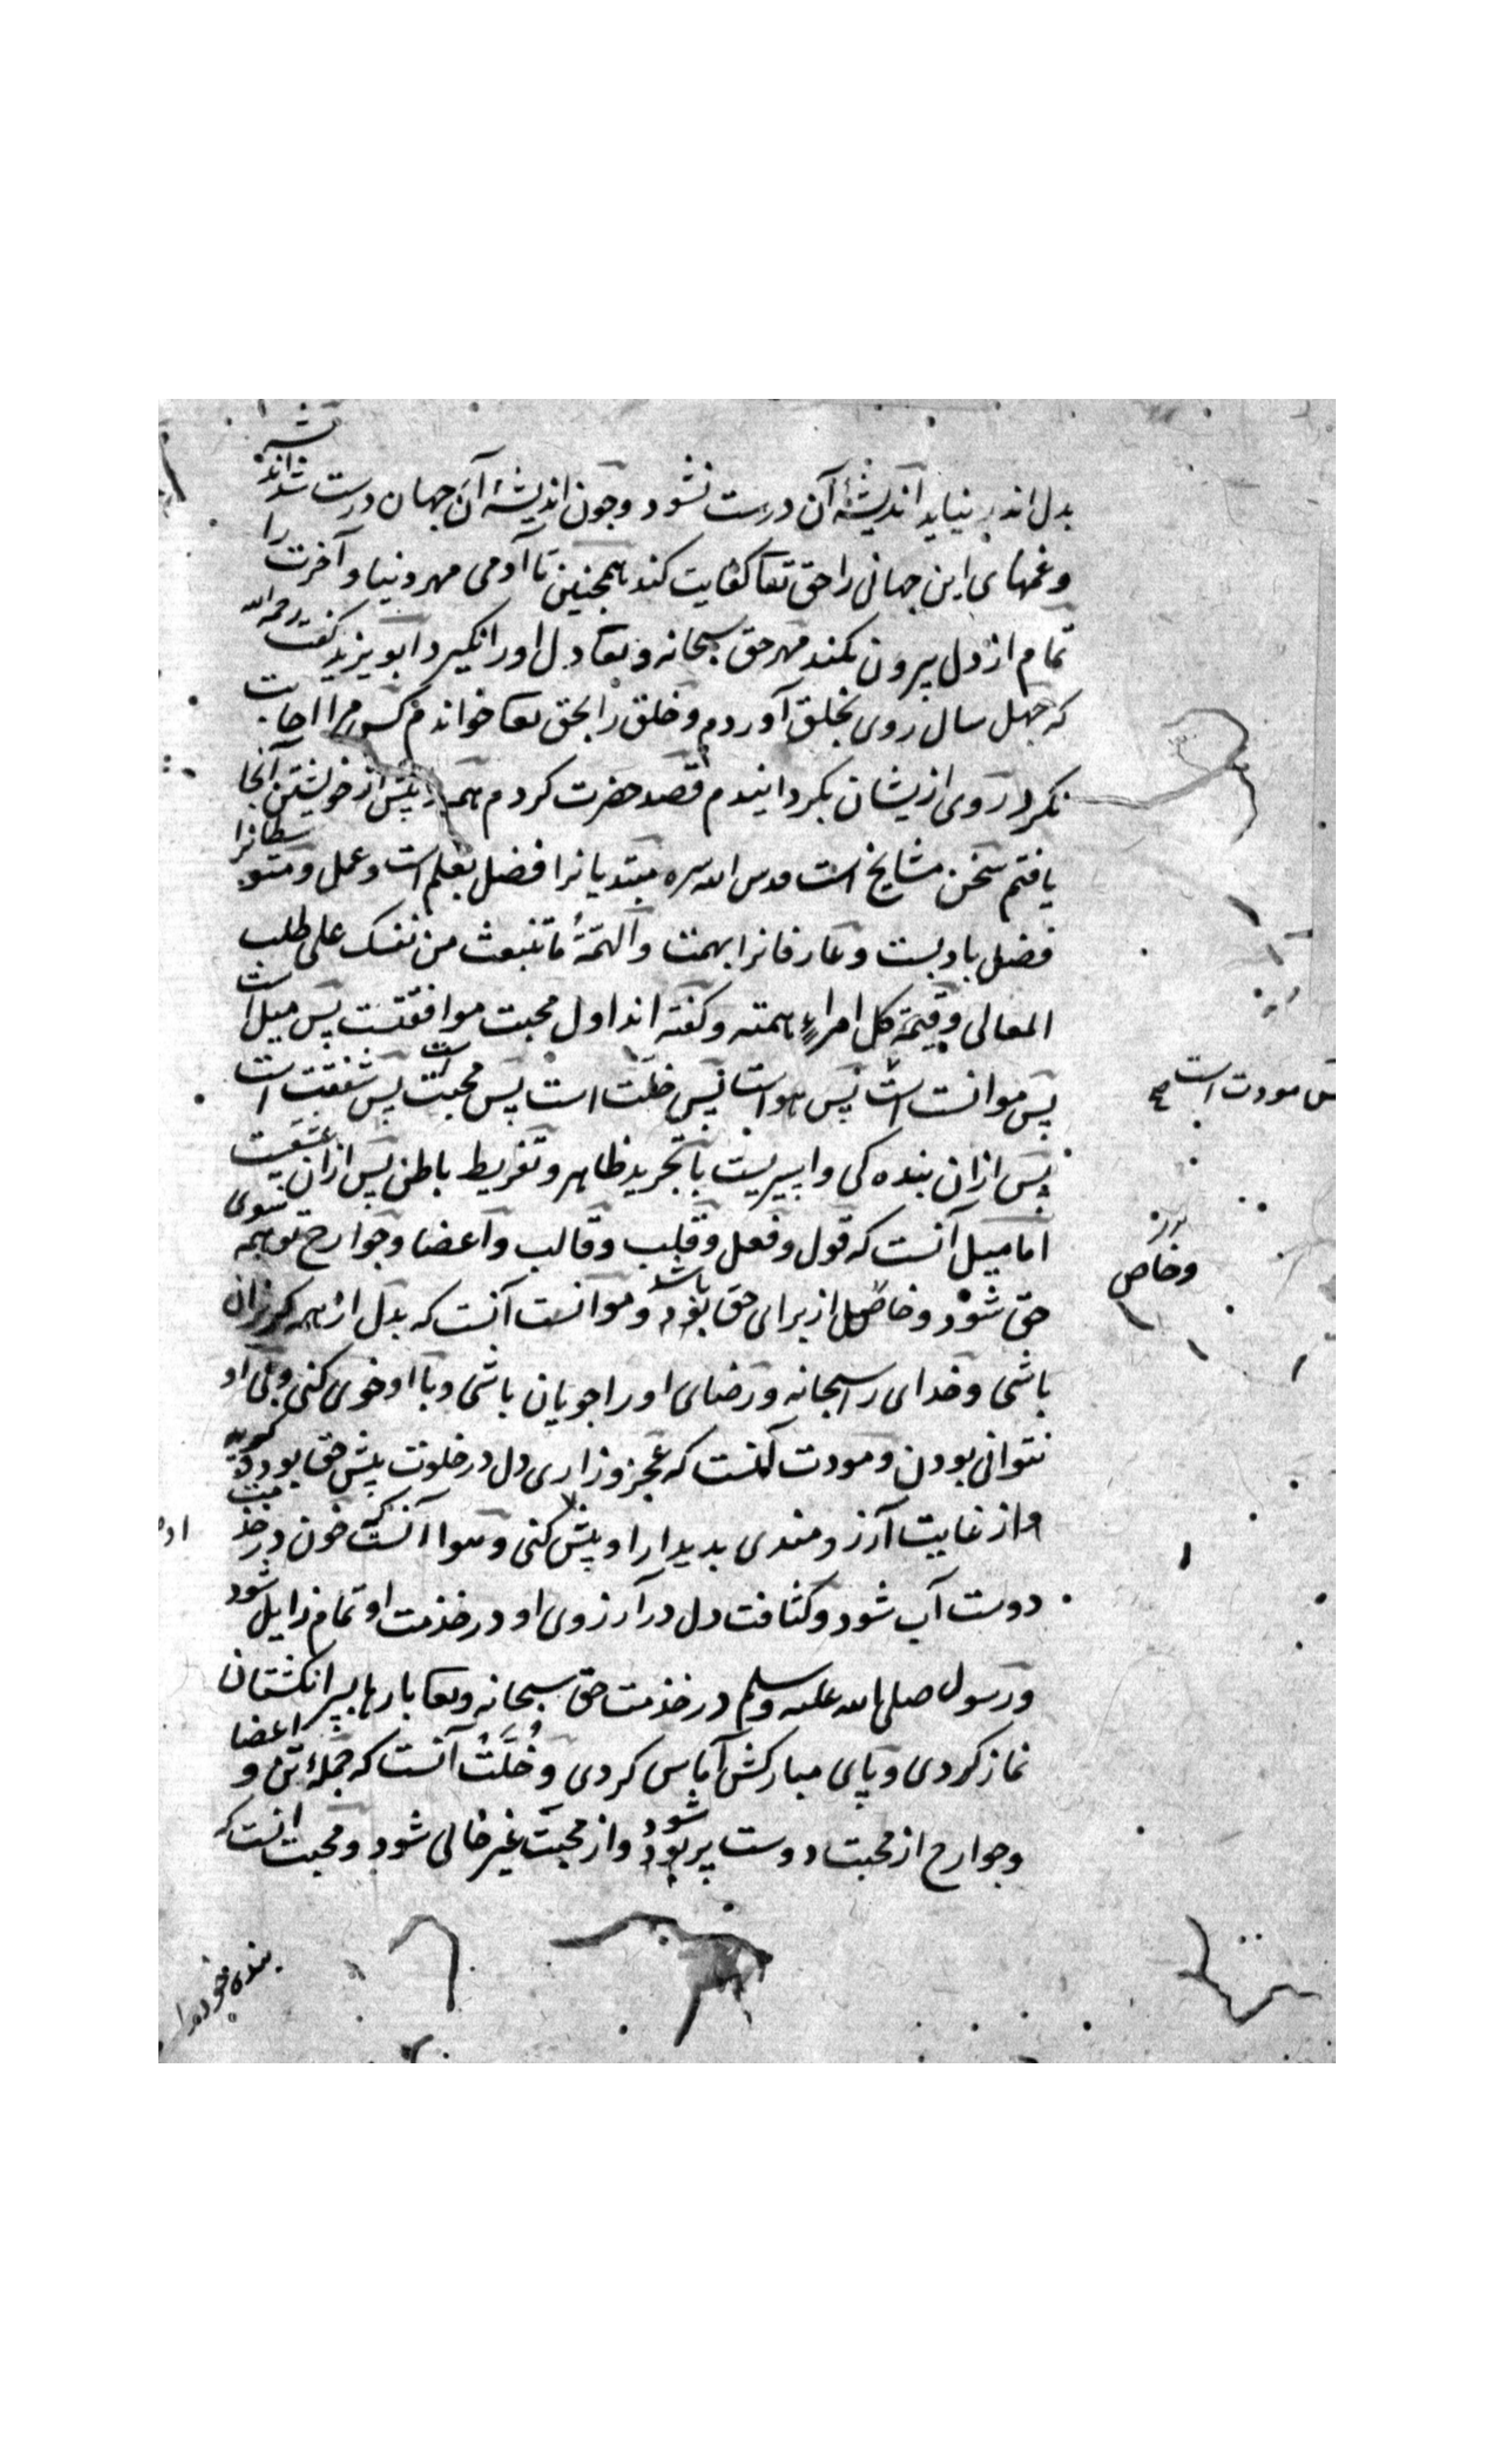 بدل اندر نیاید اندیشهٔ آن درست نشود وچون اندیشهٔ آن جهان درست شد اندیشه
وغمهای این جهانی را حق تعا کفایت کند همچنین تا آدمی مهر دنیا و آخرت را
تمام از دل بیرون نکند مهر حق سبحانه وتعا دل اورا نگیرد ابو یزید گفت رحمه الله
که چهل سال روی بخلق آوردم وخلق را بحق تعا خواندم کس مرا اجابت
نکرد روی ازیشان بگردانیدم قصد حضرت کردم همه را پیش از خویشتن آنجا
یافتم سخن مشایخ است قدس الله سره مبتدیانرا فضل بعلم است وعمل ومتوسطانرا
فضل بادبست وعارفانرا بهمت والهمّةُ ما تنبعث من نفسک علی طلب
المعالی وقیمة کل امراءٍ همته وگفته اند اول محبت موافقتست پس میل است
پس موانست است پس هواست پس خلّت است پس محبت است پس شغفت است
پس مودت است صح
پس ازان بنده کی وا بتجرید ظاهر وتفرید باطن پس ازان عشقیت
اما میل آنست که قول وفعل وقلب وقالب واعضا وجوارح تو همه سوی
حق شود وخاص از برای حق باشد وموانست آنست که بدل از همه گریزان
وخاص
باشی وخدای را سبحانه ورضای اورا جویان باشی وبا او خوی کنی وبی او
نتوانی بودن ومودت آنست که عجز وزاری دل در خلوت پیش حق بود
واز غایت آرزومندی بدیدار او پیش کنی وهوا آنست که خون در خدمت
دوست آب شود وکثافت دل در آرزوی او در خدمت او تمام زایل شود
ورسول صلی الله علیه وسلم در خدمت حق سبحانه وتعا بارها بسر انگشتان
نماز کردی وپای مبارکش آماس کردی وخُلَّتُ آنست که جملهٔ تن و اعضا
وجوارح از محبت دوست پر شود واز محبت غیر خالی شود ومحبت آنست که
بنده خود را